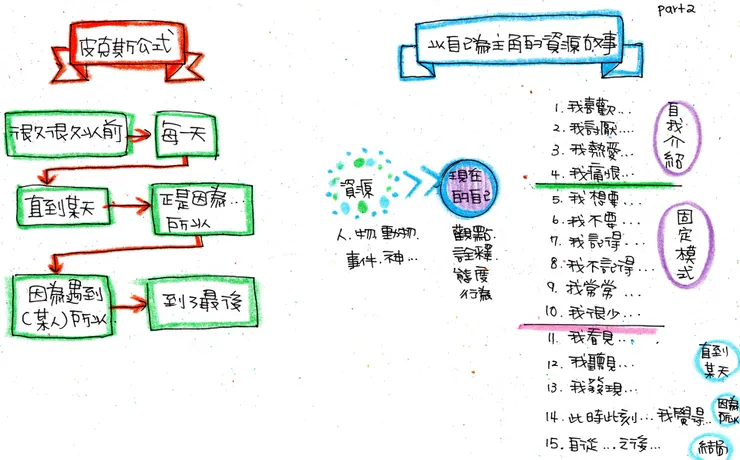 part2
皮克斯公式
很久很久以前
每一天
直到某天
正是因為...
所以
因為遇到
(某人)所以...
到了最後
以自己為主角的資源故事
資源
人.物.動物.
事件.神...
現在
的自己
觀點
詮釋
態度
行為
1. 我喜歡...
2. 我討厭...
3. 我熱愛...
4. 我痛恨...
自我介紹
5. 我想要...
6. 我不要...
7. 我記得...
8. 我不記得...
9. 我常常...
10. 我很少...
固定模式
11. 我看見...
12. 我聽見...
13. 我發現...
直到
某天
14. 此時此刻...我覺得...
因為
所以
15. 自從...之後...
結局